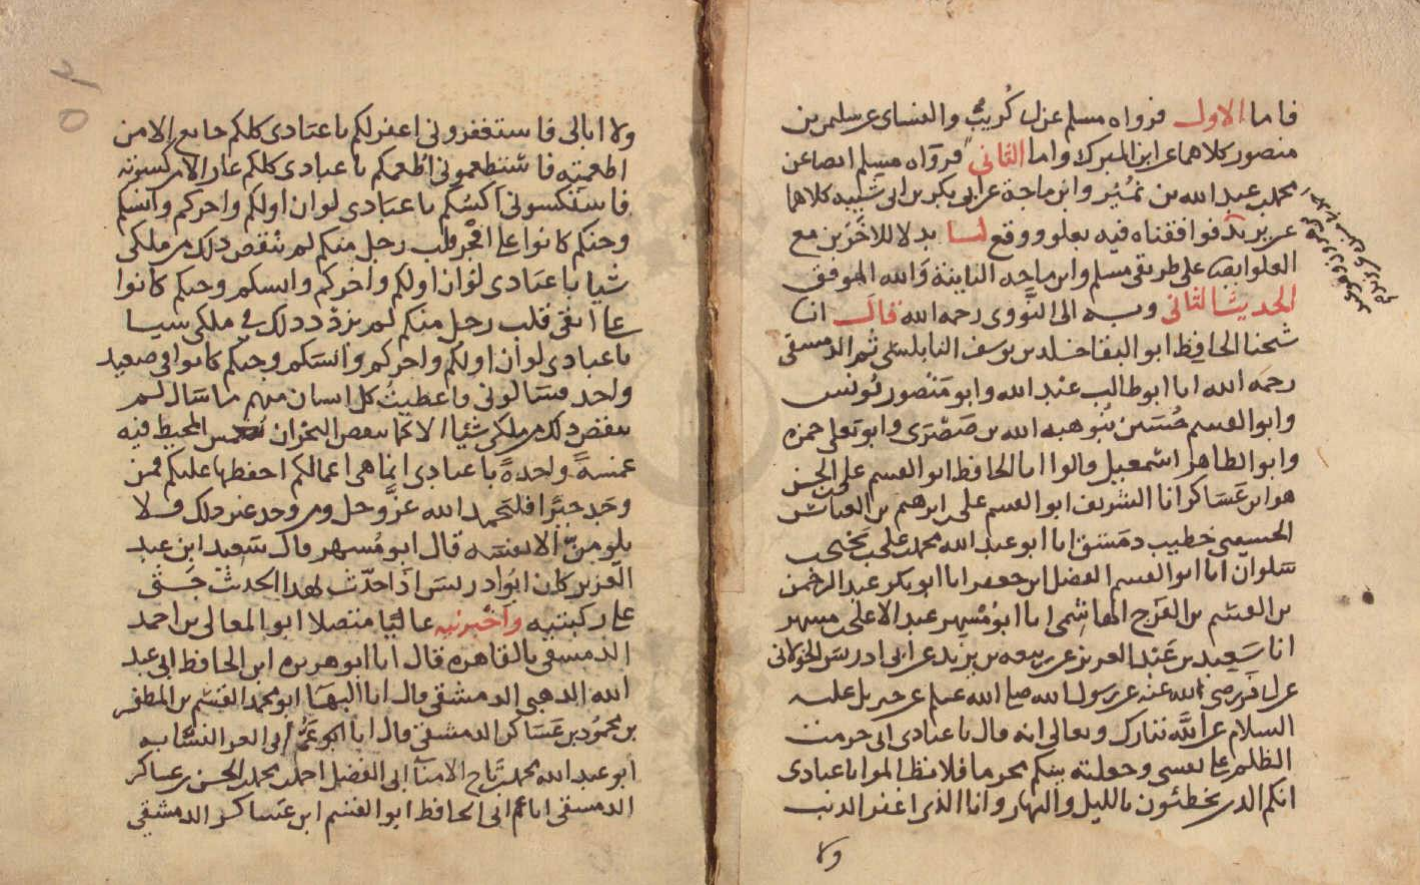 فاما الاول فرواه مسلم عن ابى كُريب والنساى عن سليمن بن
منصور كلاهما عن ابن المبرك واما الثانى فرواه مسلم ايضا عن
محمد بن عبد الله بن نمُير وابن ماجة عن ابى بكر بن ابى شيبه كلاهما
عن بريد فوافقناه فيه بعلو ووقع لنا بدلا للاخرين مع
العلو ايضا على طريقى مسلم وابن ماجه الثانية والله الموفق
الحديث الثانى وبه الى النووى رحمه الله قال انا
شيخنا الحافظ ابو البقا خلد بن يوسف النابلسى ثم الدمشقى
رحمه الله انا ابو طالب عبد الله وابو منصور يُونس
وابو القسم حُسَين بن هبه الله بن صَصْرَى وابو يعلى حمزه
وابو الطاهر اسمعيل قالوا انا الحافظ ابو القسم على بن الحسن
هو ابن عَسَاكر انا الشريف ابو القسم على بن ابرهيم بن العباس
الحسينى خطيب دمشق انا ابو عبد الله محمد بن على بن يحيى
سلوان انا ابو القسم الفضل ابن جعفر انا ابو بكر عبد الرحمن
بن القسم بن الفرج الهاشمى انا ابو مُسْهر عبد الاعلى بن مسهر
انا سَعِيد بن عَبد العزيز عن ربيعه بن يزيد عن ابى ادريس الخولانى
عن ابى ذر رضى الله عنه عن رسول الله صلى الله عليه وسلم عن جبريل عليه
السلام عن الله تبارك وتعالى انه قال يا عبادى انى حرمت
الظلم على نفسى وجعلته بينكم محرما فلا تظالموا يا عبادى
انكم الذين تخطئون بالليل والنهار وانا الذى اغفر الذنوب
ولا
ولا ابالى فاستغفرونى اغفر لكم يا عبادى كلكم جايع الا من
اطعمته فاستطعمونى اطعمكم يا عبادى كلكم عار الا من كسوته
فاستكسونى اكسُكم يا عبَادى لو ان اولكم واخركم وانسكم
وجنكم كانوا على افْجر قلب رجل منكم لم ينقص ذلك من ملكى
شيا يا عبَادى لو ان اولكم واخركم وانسكم وجنكم كانوا
على اتقى قلب رجل منكم لم يزد ذلك فى ملكى شيا
يا عبادى لو ان اولكم واخركم وانسكم وجنكم كانوا فى صعيد
واحد فسَالونى فاعطيتُ كل انسان منهم ما سَال لم
ينقص ذلك من ملكى شئيا الا كما ينقص البَحْران المحيط فيه
غمسةً واحدةً يا عبادى انما هى اعمالكم احفظها عليكم فمن
وجَد خيرًا فليحمد الله عزَّ وجل ومن وجد غير ذلك فلا
يلومن الا نفسه قال ابو مُسهر قال سَعِيد ابن عبد
العزيز كان ابُو ادريس اذا حدّث بهذا الحديث جَثى
على ركبتيه واخْبرنيه عاليًا متصلا ابو المعالى بن احمد
الدمشقى بالقاهره قال انا ابو هريره ابن الحافظ ابى عبد
الله الذهبى الدمشقى قال انا البهَا ابو محمد القسم بن المظفر
بن محمُود بن عَسَاكر الدمشقى قال انا ابى العز النسَّابه
ابو عبد الله محمد بن تاج الامنَآ ابى الفضل احمد بن محمد بن الحسن بن عساكر
الدمشقى انا عم ابى الحافظ ابو القسم ابن عَسَاكر الدمشقى